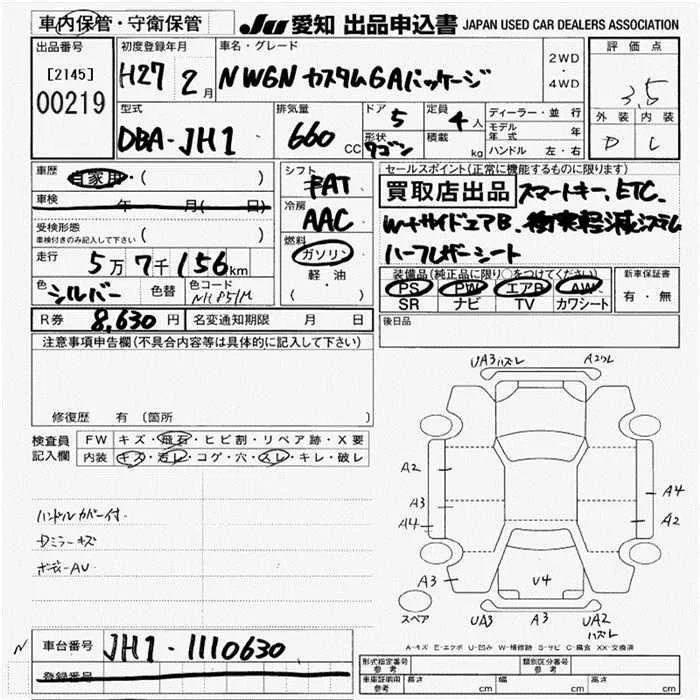 車内保管・守衛保管 JU 愛知 出品申込書 JAPAN USED CAR DEALERS ASSOCIATION
出品番号 初度登録年月 車名・グレード 評価点
[2145] H27 2月 NWGN カスタムGAパッケージ 2WD・4WD 3.5
00219 型式 排気量 ドア 定員 ディーラー・並行 外装 内装
DBA-JH1 660CC 5 4人 モデル年式 年 D C
形状 ワゴン 積載 kg ハンドル 左・右
車歴 自家用・( ) シフト セールスポイント(正常に機能するものに限ります)
車検 年 月( 日) FAT 買取店出品 スマートキー、ETC、
受検形態 冷房 W+サイドエアB、衝突軽減システム
車検付きのみ記入して下さい ( ) AAC ハーフレザーシート
走行 5万7千156km 燃料 ガソリン 装備品(純正品に限り○をつけてください) 新車保証書
軽油 PS PW エアB AW 有・無
色 シルバー 色替 色コード ( ) SR ナビ TV カワシート
R券 8,630円 名変通知期限 月 日 後日品
注意事項申告欄(不具合内容等は具体的に記入して下さい)
修復歴 有(箇所 )
検査員 FW キズ・飛石・ヒビ割・リペア跡・X要
記入欄 内装 キズ・汚レ・コゲ・穴・スレ・キレ・破レ
ハンドルカバー付.
Dミラーキズ
ボディーAU
UA3ハズレ Aウスレ
A2
A3
A4
A4
A2
A3 U4
スペア UA3 A3 UA2
ハズレ
A-キズ E-エクボ U-凹み W-補修跡 S-サビ C-腐食 XX-交換済
N 車台番号 JH1-1110630
登録番号
形式指定番号 参考 類別区分番号 参考
車庫証明用 参考 長さ cm 幅 cm 高さ cm